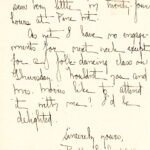 very little in twenty four
hours at Pine Mt.
As yet I have no engage-
ments for next week except
for a folk dancing class on
Thursday. Wouldn't you and
Mrs. Morris like to attend
it with me? I'd be
delighted.
Sincerely yours,